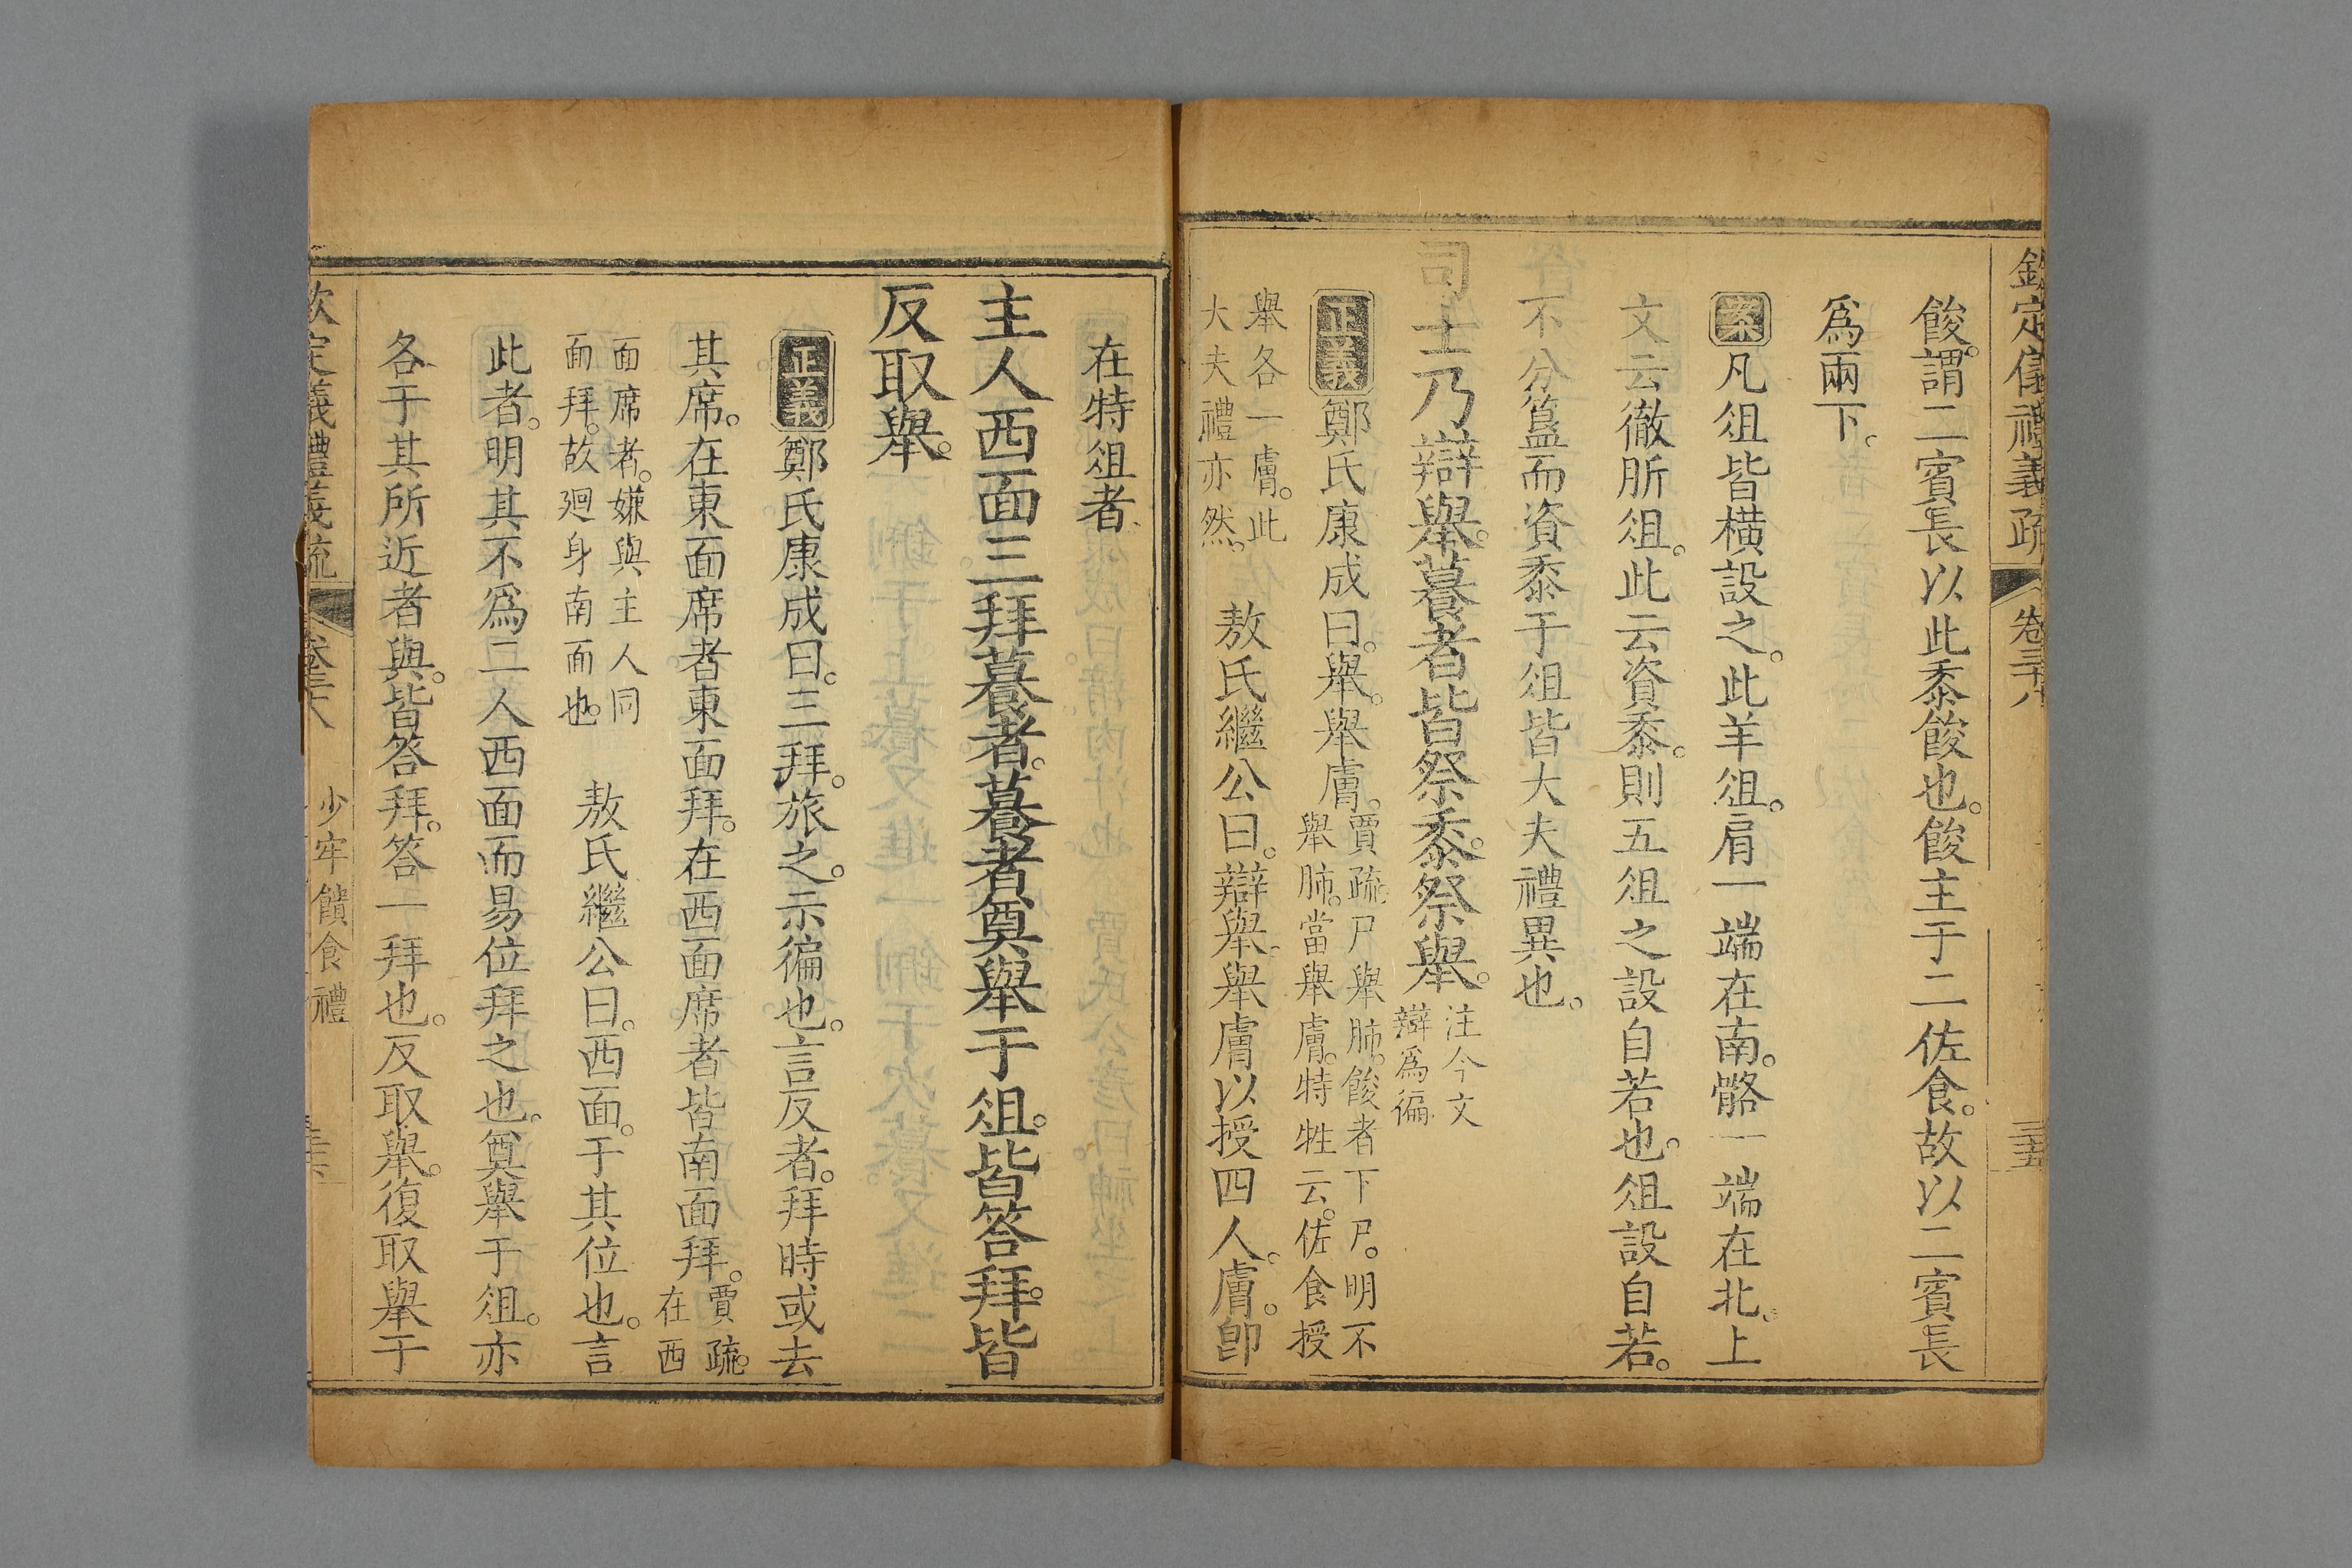 欽定儀禮義疏 卷三十八 三五
餕。謂二賓長以此黍餕也。餕主于二佐食。故以二賓長
爲兩下。
案凡俎皆橫設之。此羊俎。肩一端在南。髂一端在北。上
文云徹肵俎。此云資黍。則五俎之設自若也。俎設自若。
不分簋而資黍于俎皆大夫禮異也。
司士乃辯舉。䭕者皆祭黍。祭舉。注今文
辯爲徧
正義鄭氏康成曰。舉。舉膚。賈疏。尸舉肺。餕者下尸。明不
舉肺。當舉膚。特牲云。佐食授
舉各一膚。此
大夫禮亦然。 敖氏繼公曰。辯舉。舉膚以授四人。膚。卽
在特俎者
主人西面三拜䭕者。䭕者奠舉于俎。皆答拜。皆
反取舉。
正義鄭氏康成曰。三拜。旅之。示徧也。言反者。拜時或去
其席。在東面席者東面拜。在西面席者皆南面拜。賈疏。
在西
面席者。嫌與主人同
面拜。故廻身南面也。 敖氏繼公曰。西面。于其位也。言
此者。明其不爲二人西面而易位拜之也。奠舉于俎。亦
各于其所近者與。皆答拜。答一拜也。反取舉。復取舉于
欽定儀禮義疏 卷三十八 少牢饋食禮